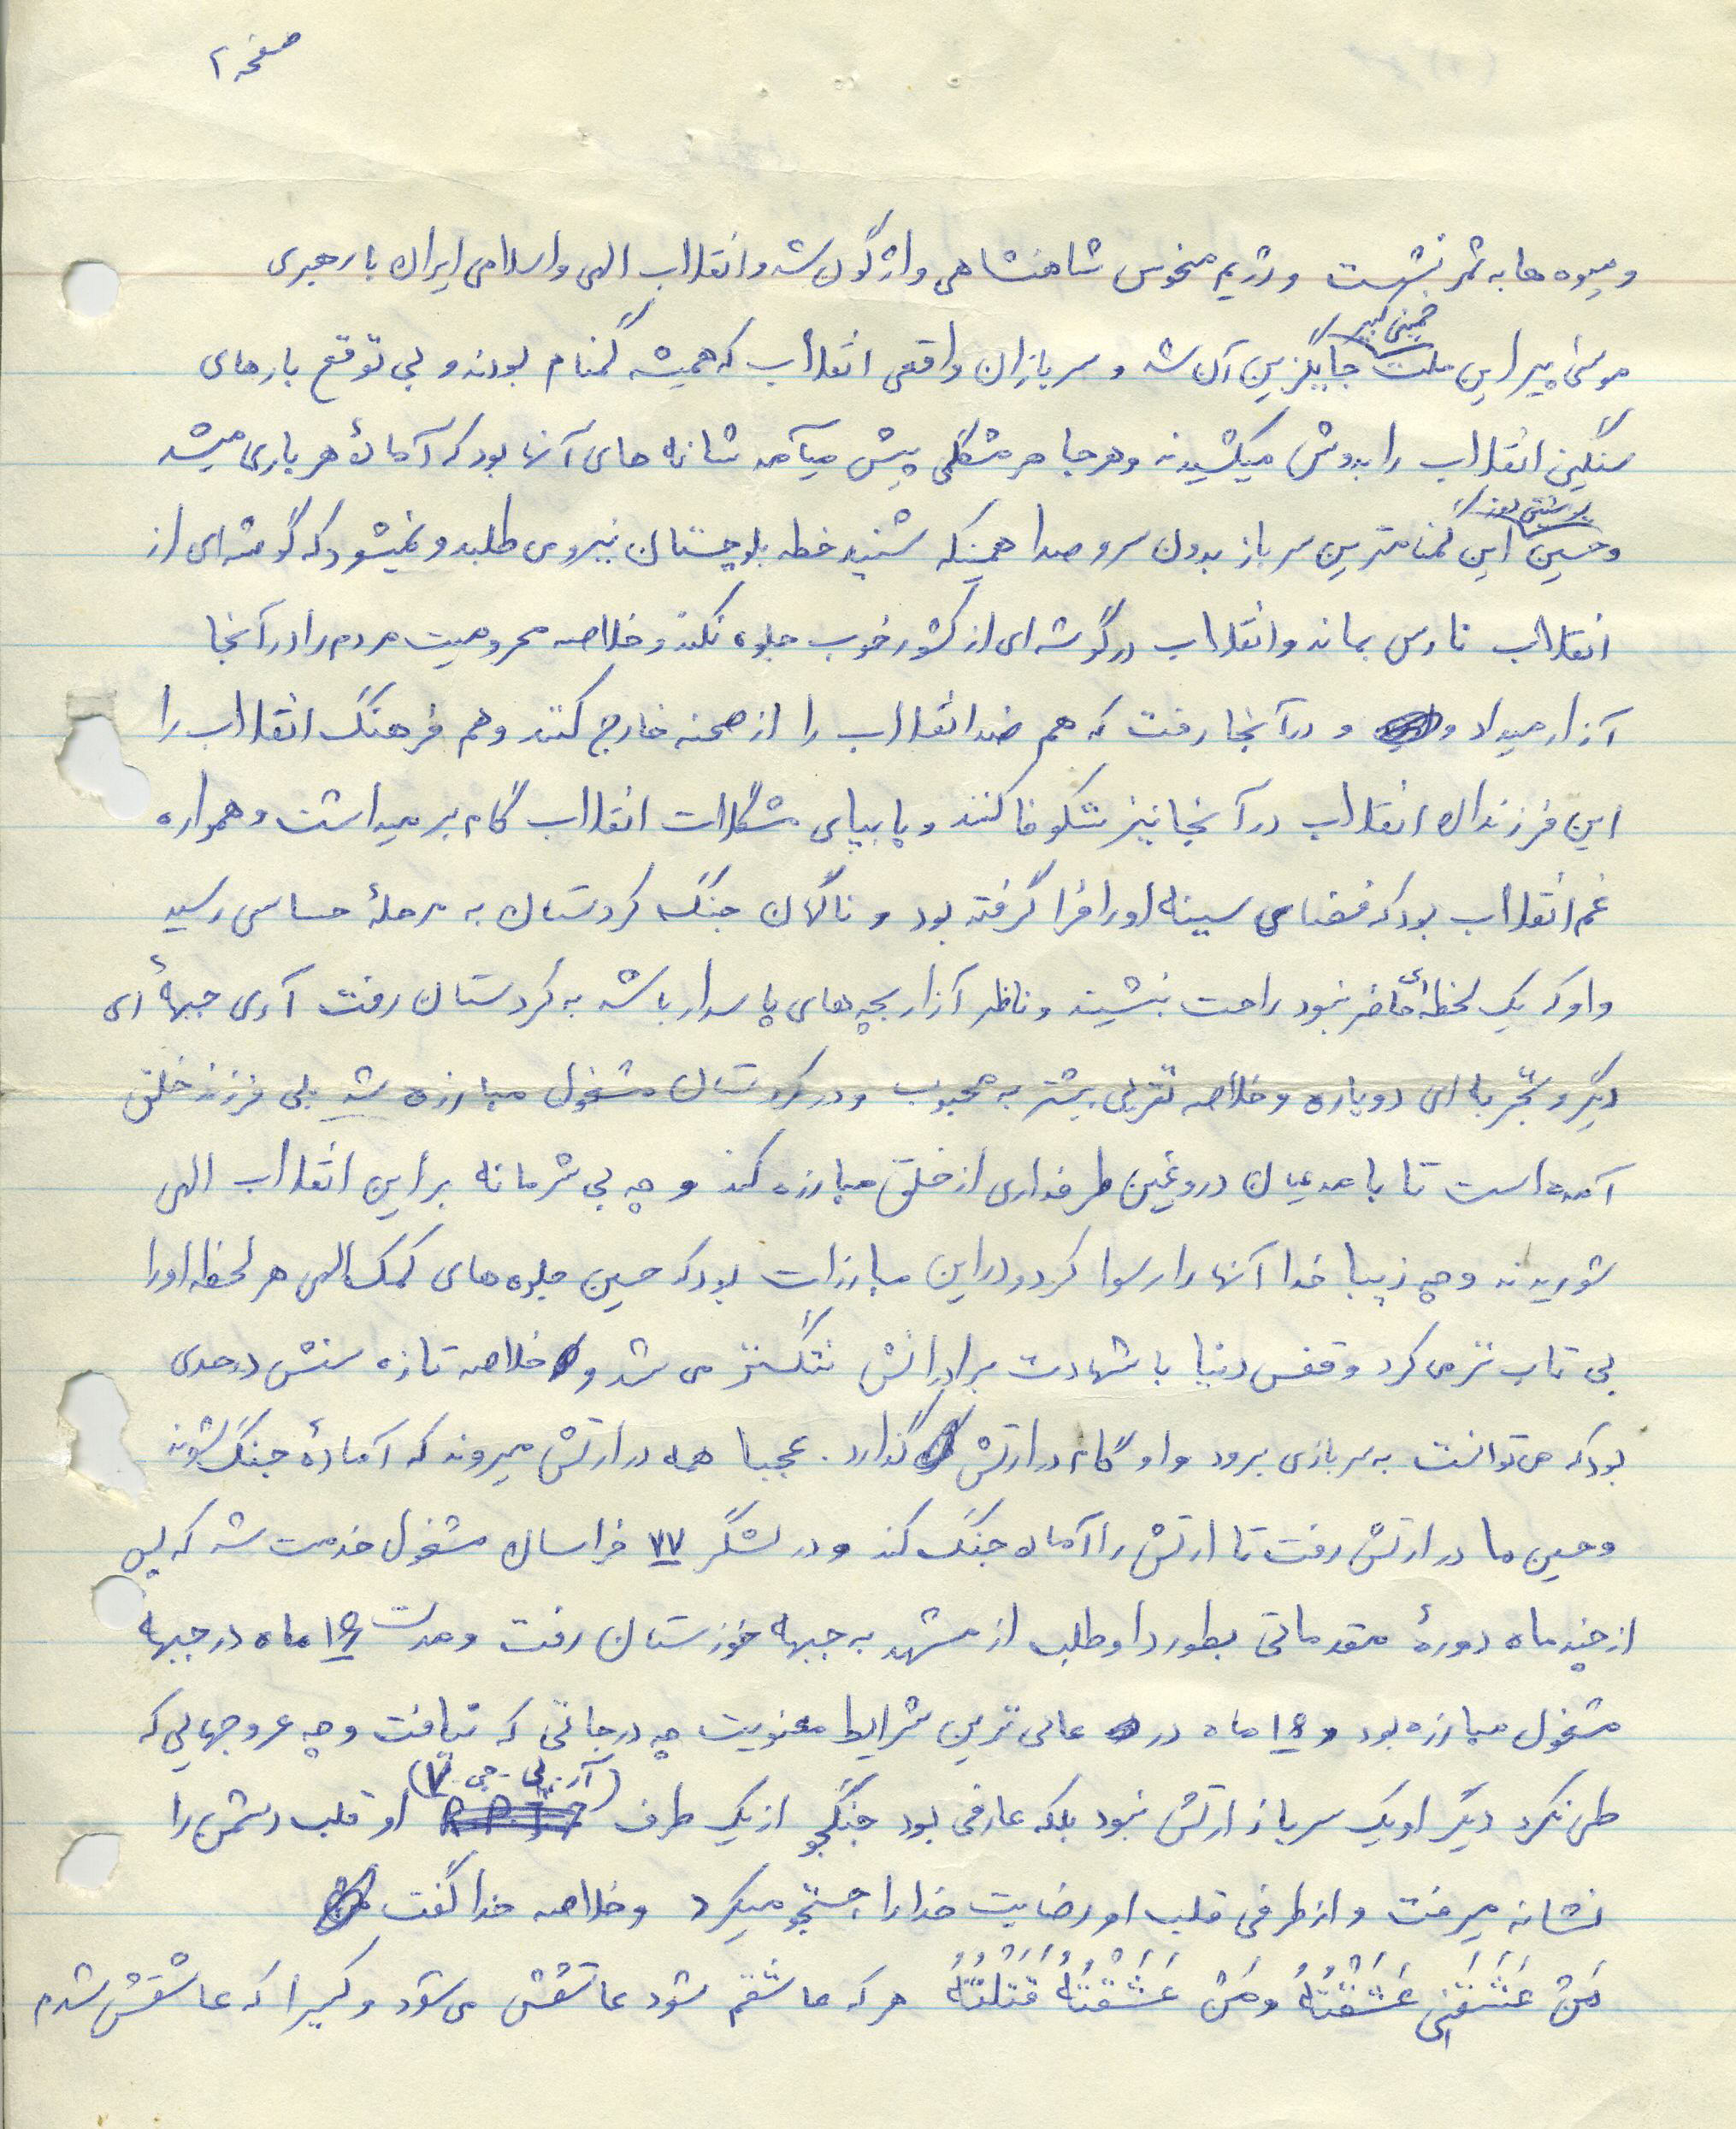 صفحه ۲
و میوه ها به ثمر نشست و رژیم منحوس شاهنشاهی واژگون شد و انقلاب الهی و اسلامی ایران با رهبری
موسی پیر این ملت خمینی کبیر جایگزین آن شد و سربازان واقعی انقلاب که همیشه گمنام بودند و بی توقع بارهای
سنگین انقلاب را بدوش میکشیدند و هرجا هر مشکلی پیش میآمد شانه های آنها بود که آمادۀ هر باری میشد
و حسین این گمنامترین سرباز بدون سر و صدا همینکه شنید خطه بلوچستان نیروی طلبد و نمیشود که گوشه ای از
انقلاب نارس بماند و انقلاب در گوشه ای از کشور خوب جلوه نکند و خلاصه محرومیت مردم را در آنجا
آزار میداد و و در آنجا رفت که هم ضد انقلاب را از صحنه خارج کنند و هم فرهنگ انقلاب را
این فرزندان انقلاب در آنجا نیز شکوفا کنند و پا بپای مشکلات انقلاب گام بر میداشت و همواره
غم انقلاب بود که فضای سینه او را فرا گرفته بود و ناگهان جنگ کردستان به مرحلۀ حساسی رسید
و او که یک لحظه حاضر نبود راحت بنشیند و ناظر آزار بچه های پاسدار باشد به کردستان رفت آری جبههٔ ای
دیگر و تجربه ای دوباره و خلاصه تقربی بیشتر به محبوب و در کردستان مشغول مبارزه شد بلی فرزند خلق
آمده است تا با مدعیان دروغین طرفداری از خلق مبارزه کند و چه بی شرمانه بر این انقلاب الهی
شوریدند و چه زیبا خدا آنها را رسوا کرد و در این مبارزات بود که حسین جلوه های کمک الهی هر لحظه او را
بی تاب تر می کرد و قفس دنیا با شهادت برادرانش تنگتر می شد و خلاصه تازه سنش در حدی
بود که می توانست به سربازی برود و او گام در ارتش گذارد. عجبا همه در ارتش میروند که آمادۀ جنگ شوند
و حسین ما در ارتش رفت تا ارتش را آماده جنگ کند و در لشگر ۷۷ خراسان مشغول خدمت شد که پس
از چند ماه دورۀ مقدماتی بطور داوطلب از مشهد به جبهه خوزستان رفت و مدت ۱۹ ماه در جبهه
مشغول مبارزه بود و ۱۹ ماه در عالی ترین شرایط معنویت چه درجاتی که نیافت و چه عروجهایی که
طی نکرد دیگر او یک سرباز ارتش نبود بلکه عارفی بود جنگجو از یک طرف (آر.پی.جی.۷) او قلب دشمن را
نشانه میرفت و از طرفی قلب او رضایت خدا را جستجو میکرد و خلاصه خدا گفت
مَنْ عَشَقَنِی عَشَقْتُهُ وَ مَنْ عَشَقْتُهُ قَتَلْتُهُ هر که عاشقم شود عاشقش می شود و کسیرا که عاشقش شدم